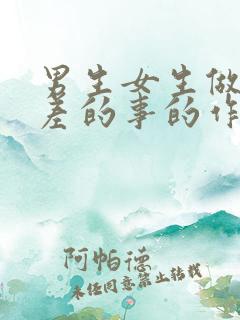 男生女生做
差的事的作
阿帕德
未经同意禁止转载